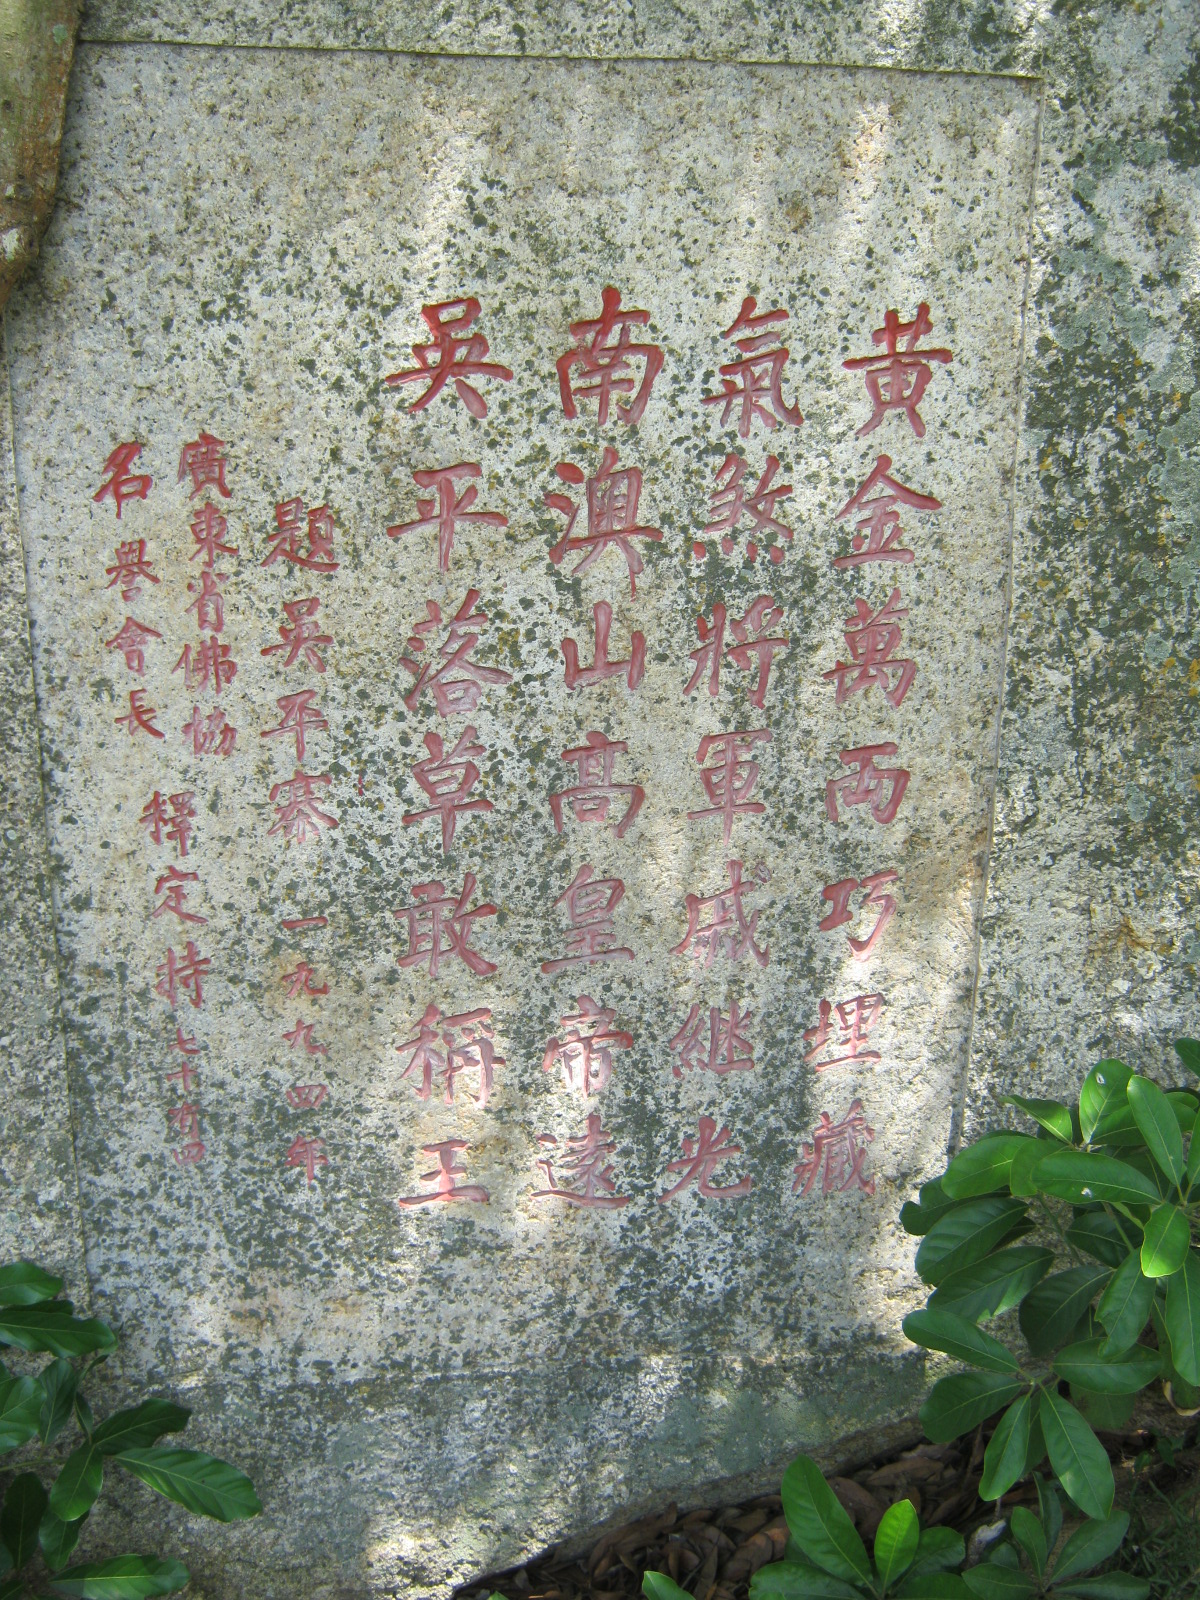 黃金萬両巧埋藏
氣煞將軍戚继光
南澳山高皇帝遠
吳平落草敢稱王
題吳平寨 一九九四年
廣東省佛協
名譽會長 釋定持 七十有四